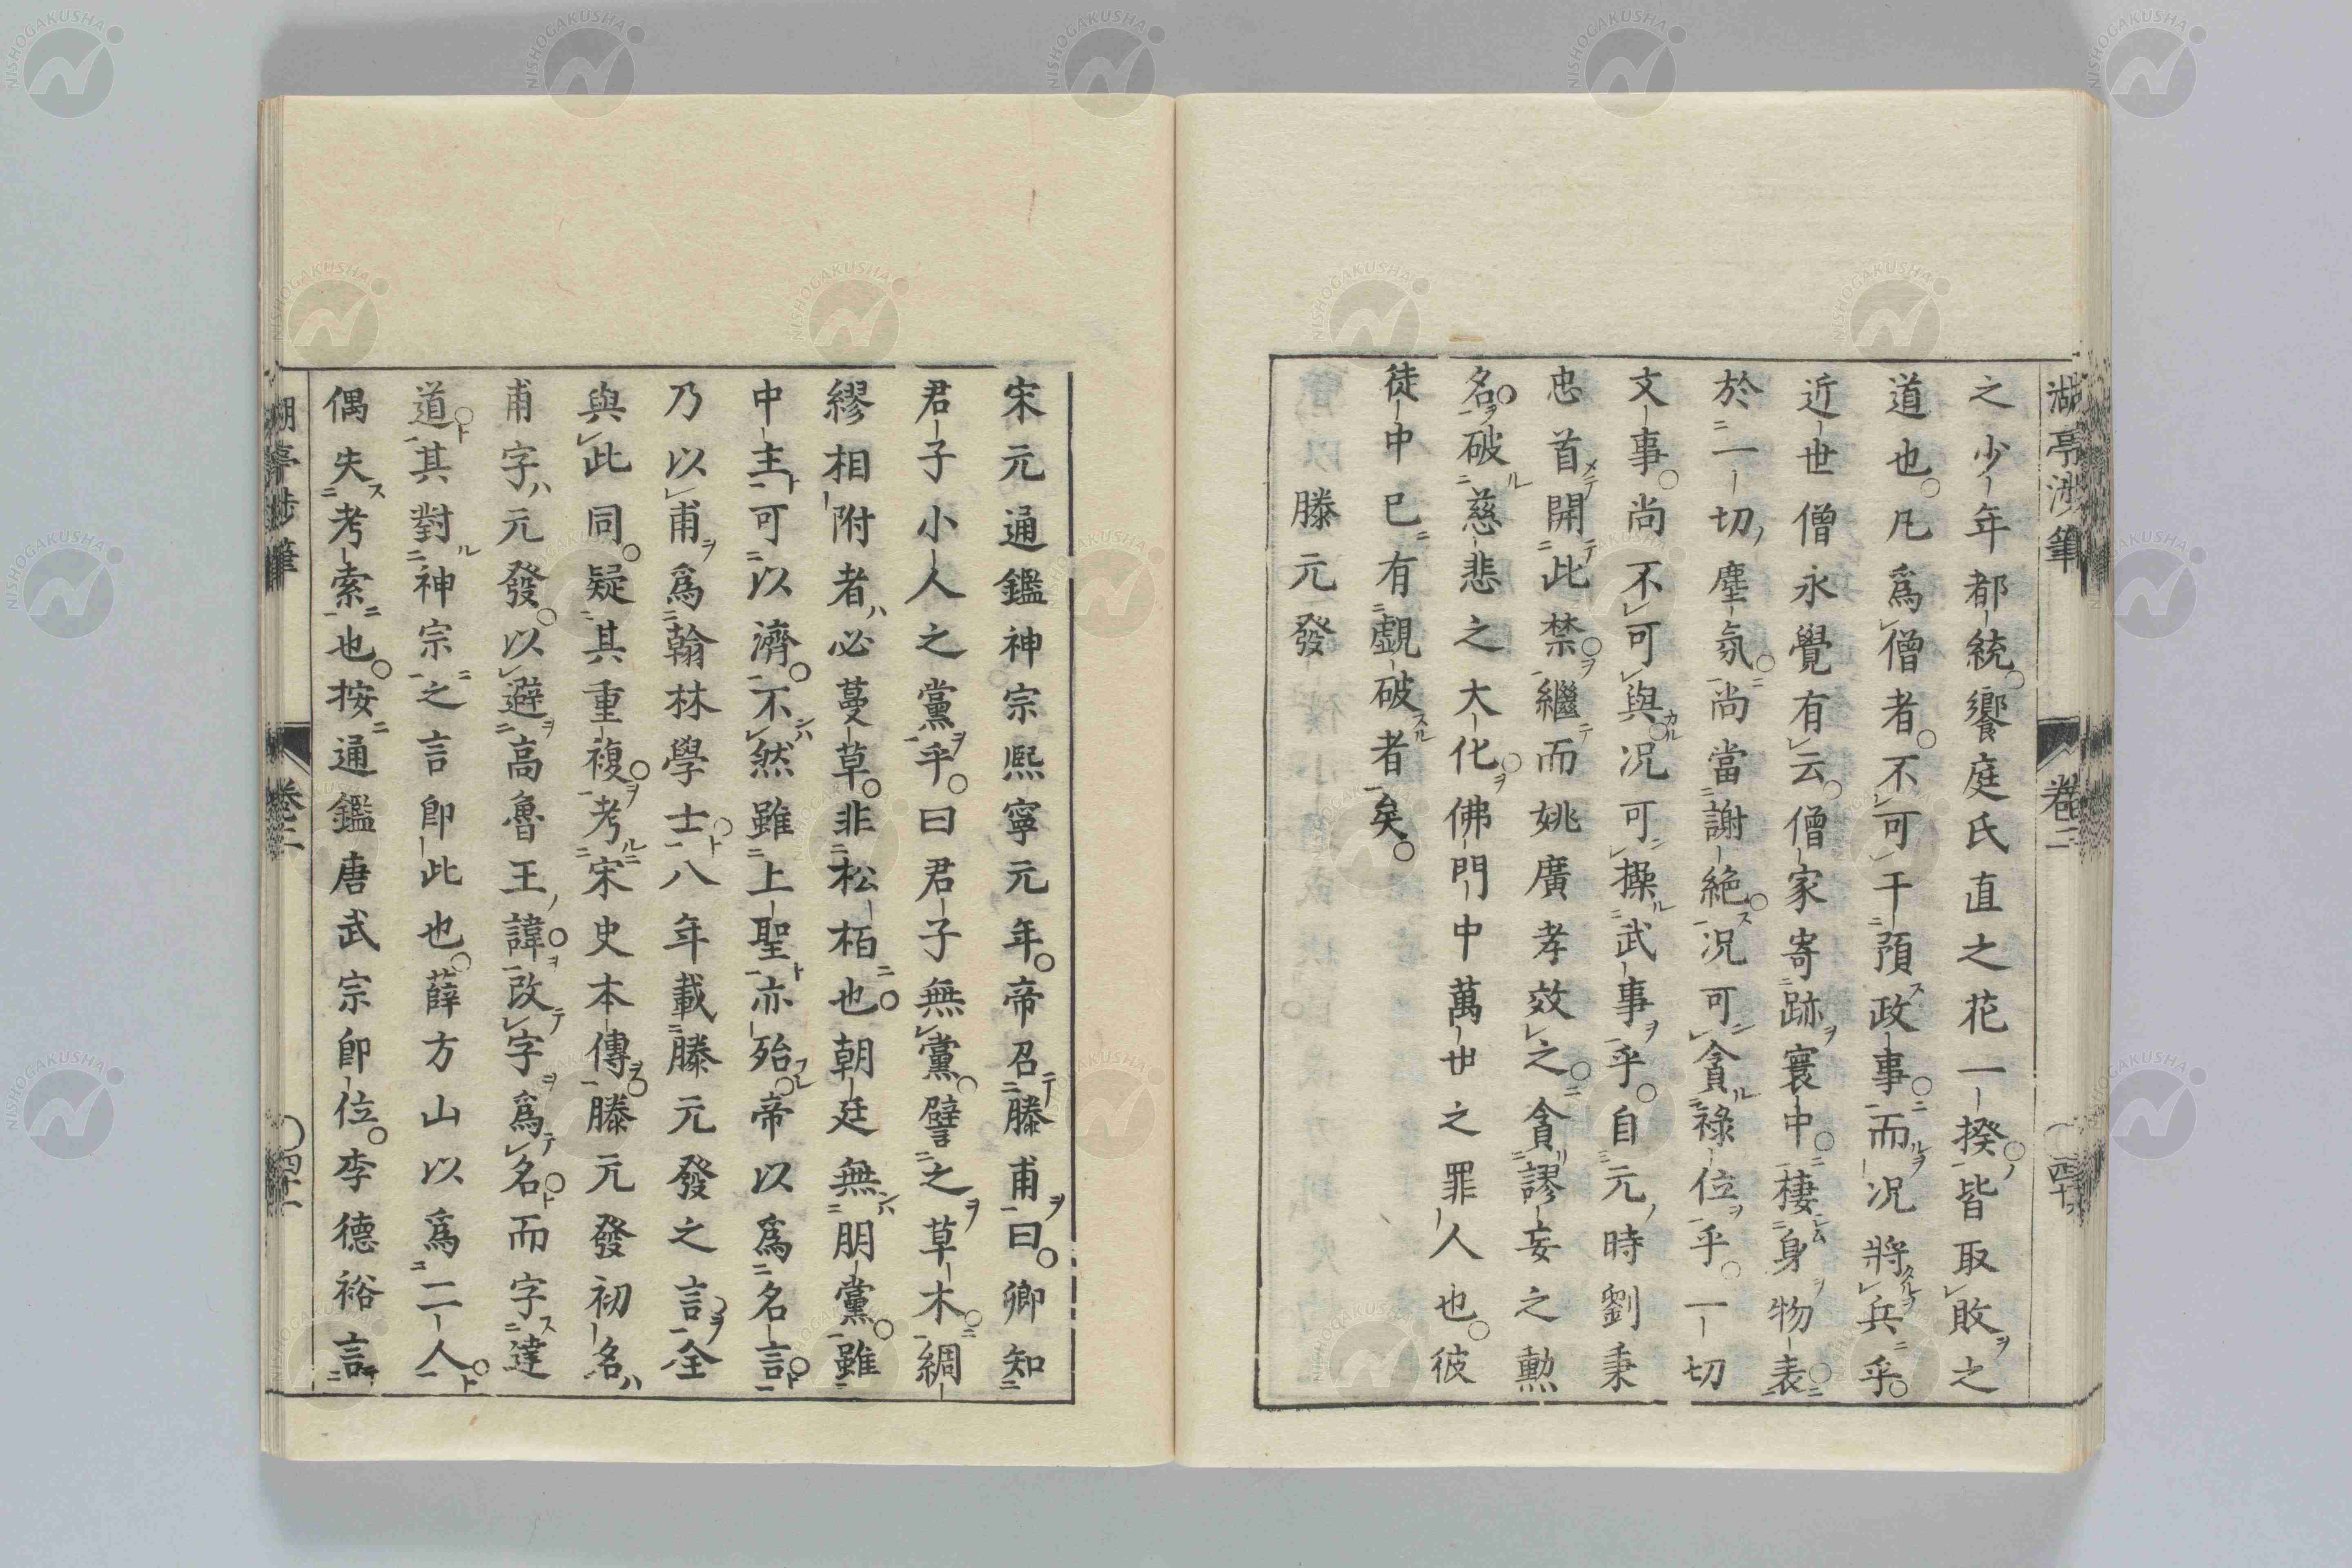 湖亭渉筆 卷二 四十
之少年都統饗庭氏直之花一揆皆取敗之
道也凡爲僧者不可干預政事而况將兵乎
近世僧永覺有云僧家寄跡寰中棲身物表
於一切塵氛尚當謝絶况可貪祿位乎一切
文事尚不可與况可操武事乎自元時劉秉
忠首開此禁繼而姚廣孝效之貪謬妄之勲
名破慈悲之大化佛門中萬世之罪人也彼
徒中已有覷破者矣
滕元發
宋元通鑑神宗熙寧元年帝召滕甫曰卿知
君子小人之黨乎曰君子無黨譬之草木綢
繆相附者必蔓草非松栢也朝廷無朋黨雖
中主可以濟不然雖上聖亦殆帝以爲名言
乃以甫爲翰林學士八年載滕元發之言全
與此同疑其重複考宋史本傳滕元發初名
甫字元發以避高魯王諱改字爲名而字達
道其對神宗之言卽此也薛方山以爲二人
偶失考索也按通鑑唐武宗卽位李德裕言
湖亭渉筆 卷二 四十一
NISHOGAKUSHA